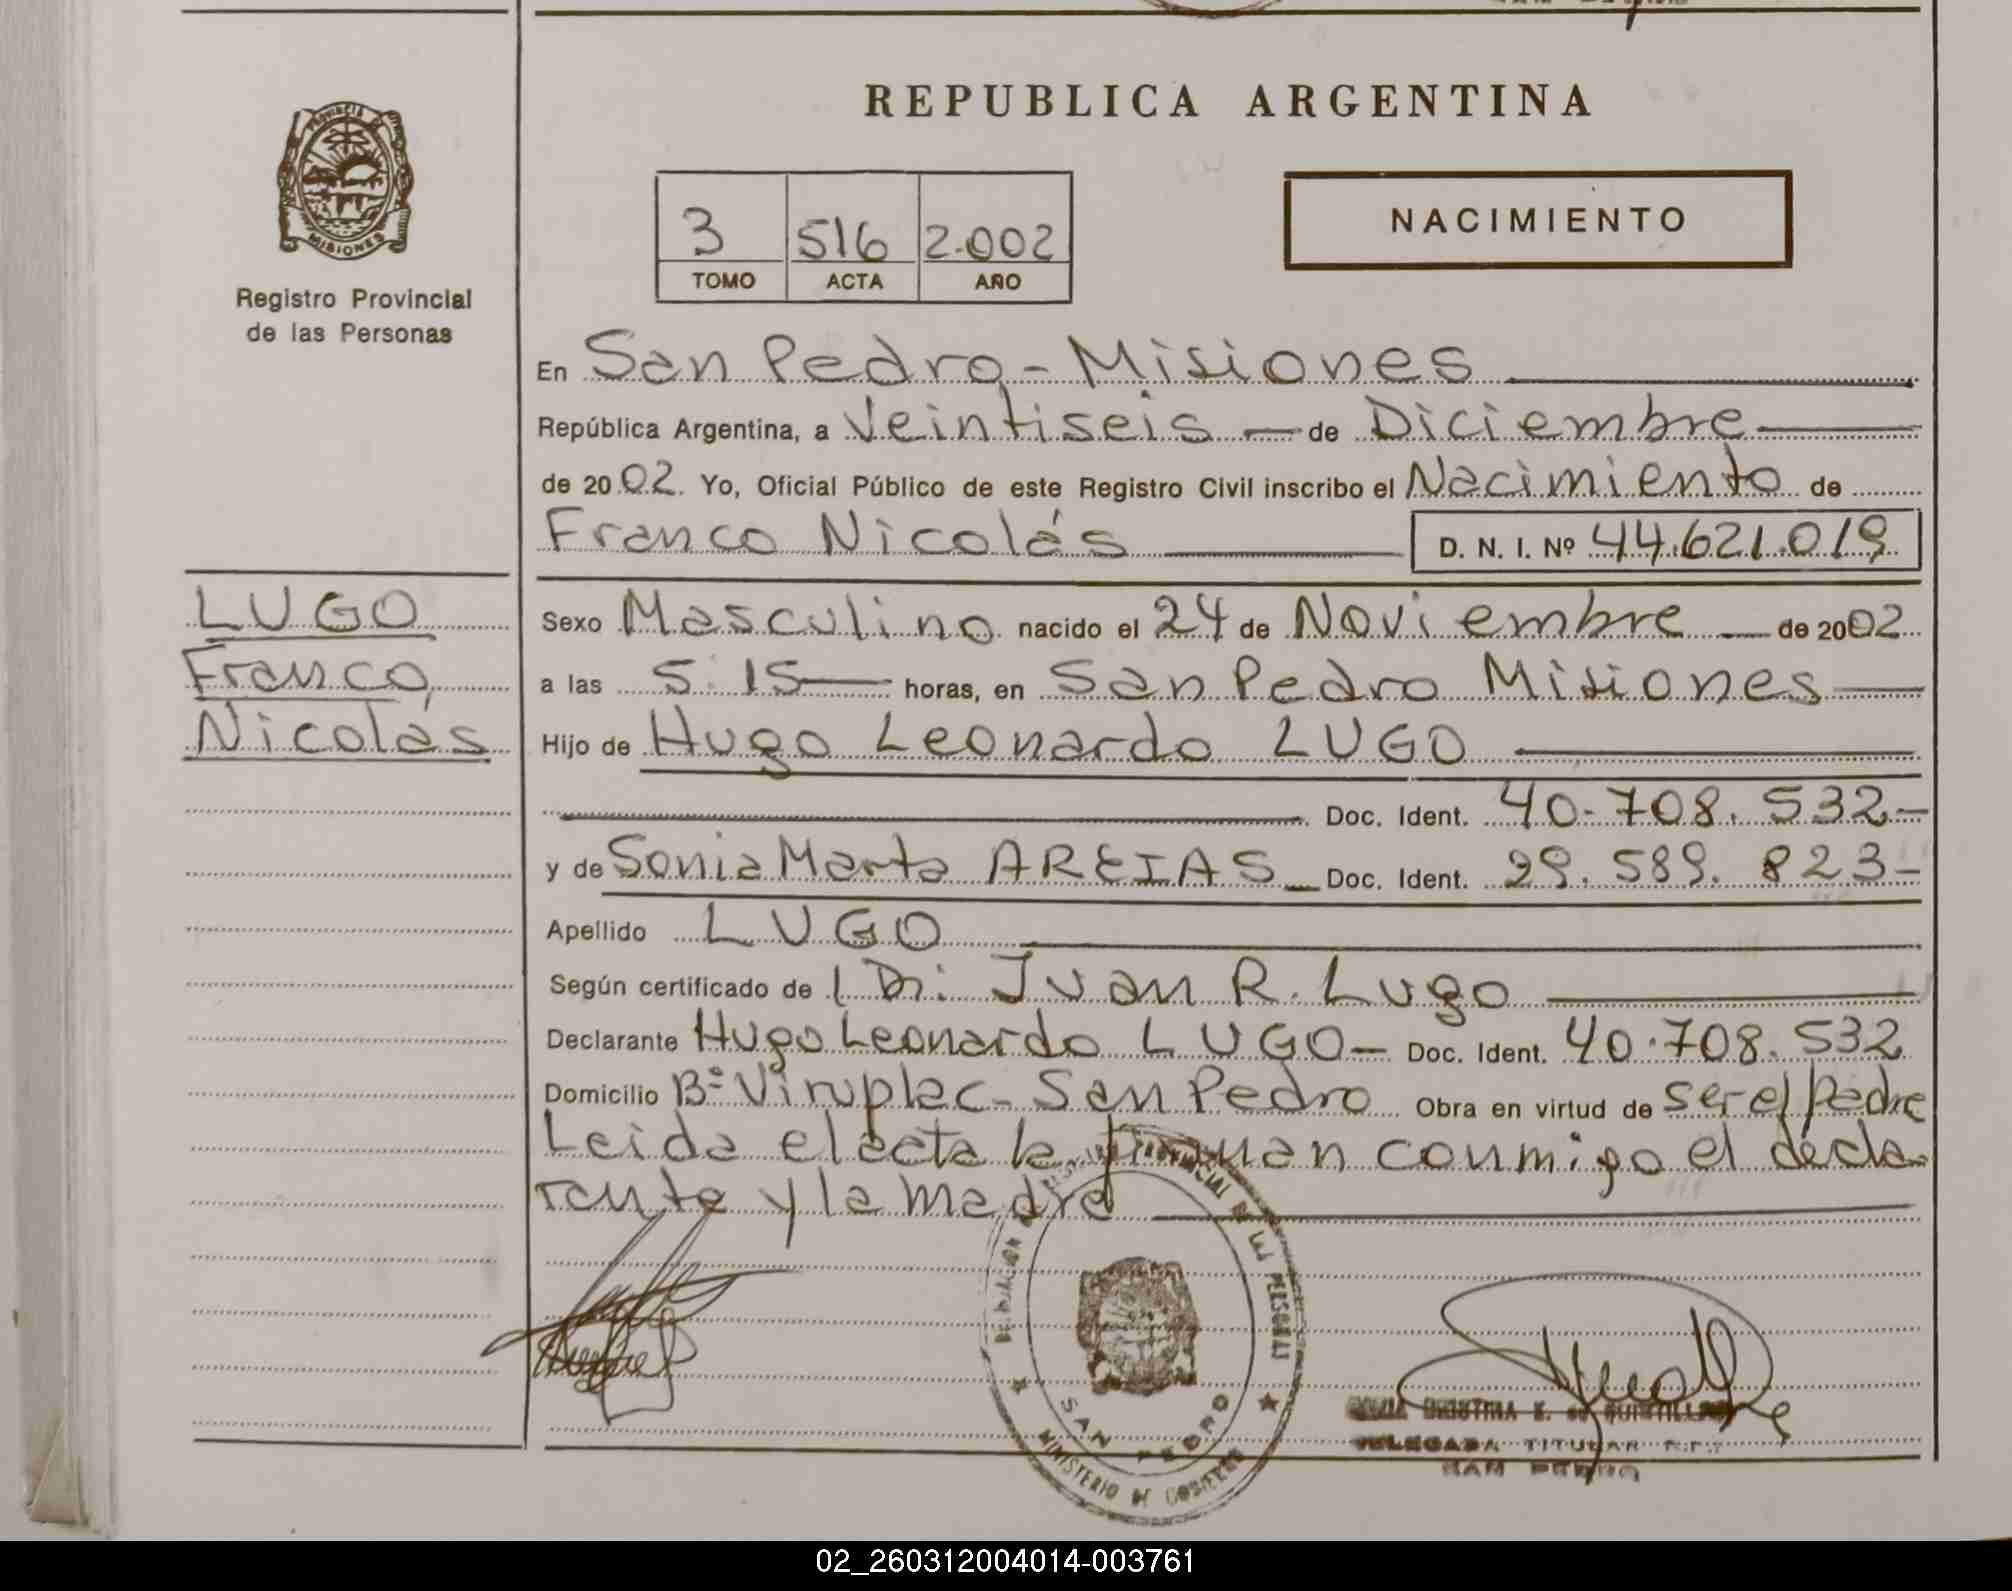 REPUBLICA ARGENTINA
PROVINCIA DE
MISIONES
Registro Provincial
de las Personas
3 516 2.002
TOMO ACTA AÑO
NACIMIENTO
En San Pedro - Misiones
República Argentina, a Veintiseis - de Diciembre
de 2002. Yo, Oficial Público de este Registro Civil inscribo el Nacimiento de
Franco Nicolás D. N. I. Nº 44.621.019
LUGO
Franco
Nicolás
Sexo Masculino nacido el 24 de Noviembre de 2002
a las 5:15 horas, en San Pedro Misiones
Hijo de Hugo Leonardo LUGO
Doc. Ident. 40.708.532-
y de Sonia Marta AREIAS Doc. Ident. 29.589.823-
Apellido LUGO
Según certificado de Dr. Juan R. Lugo
Declarante Hugo Leonardo LUGO - Doc. Ident. 40.708.532
Domicilio Bº Viruplac - San Pedro Obra en virtud de ser el padre
Leida el acta la firman conmigo el decla
rante y la madre
PROVINCIAL DE LAS PERSONAS
SAN PEDRO
MINISTERIO DE GOBIERNO
CRISTINA
DELEGADA TITULAR
SAN PEDRO
02_260312004014-003761